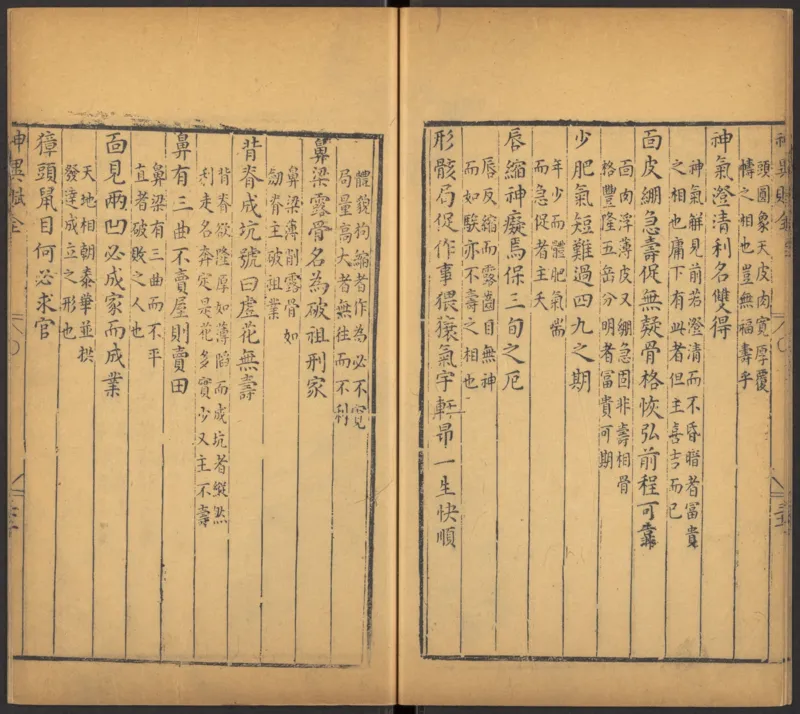 頭圓象天皮肉寛厚覆
幬之相也豈無福壽乎
神氣澄清利名雙得
神氣觧見前若澄清而不昏暗者冨貴
之相也庸下有此者但主喜吉而已
面皮綳急壽促無疑骨格恢弘前程可靠
面肉浮薄皮又綳急固非壽相骨
格豐隆五岳分明者冨貴可期
少肥氣短難過四九之期
年少而體肥氣喘
而急促者主夭
唇縮神癡焉保三旬之厄
唇反縮而露齒目無神
而如騃亦不壽之相也
形骸局促作事猥氣宇軒昻一生快順
體貌狗縮者作為必不寛
局量高大者無往而不利
鼻梁露骨名為破祖刑家
鼻梁薄削露骨如
劒脊主破祖業
背脊成坑號曰虚花無壽
背脊欲隆厚如薄陷而成坑者縱然
利走名奔定是花多實少又主不壽
鼻有三曲不賣屋則賣田
鼻梁有三曲而不平
直者破敗之人也
面見兩凹必成家而成業
天地相朝泰華並拱
發達成立之形也
獐頭鼠目何必求官
神異賦全